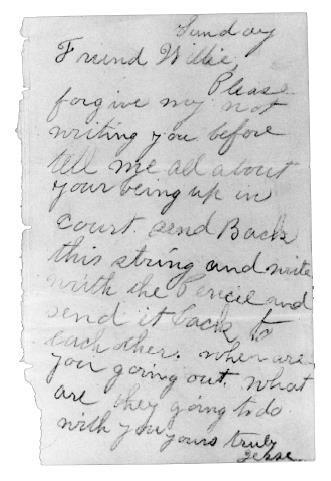 Sunday
Freind Willie,
Please
forgive my not
writing you before
tell me all about
your being up in
court. send Back
this string and write
with the Pencil and
send it back, to
each other. when are
you going out. What
are they going to do
with you yours truly
Jesse